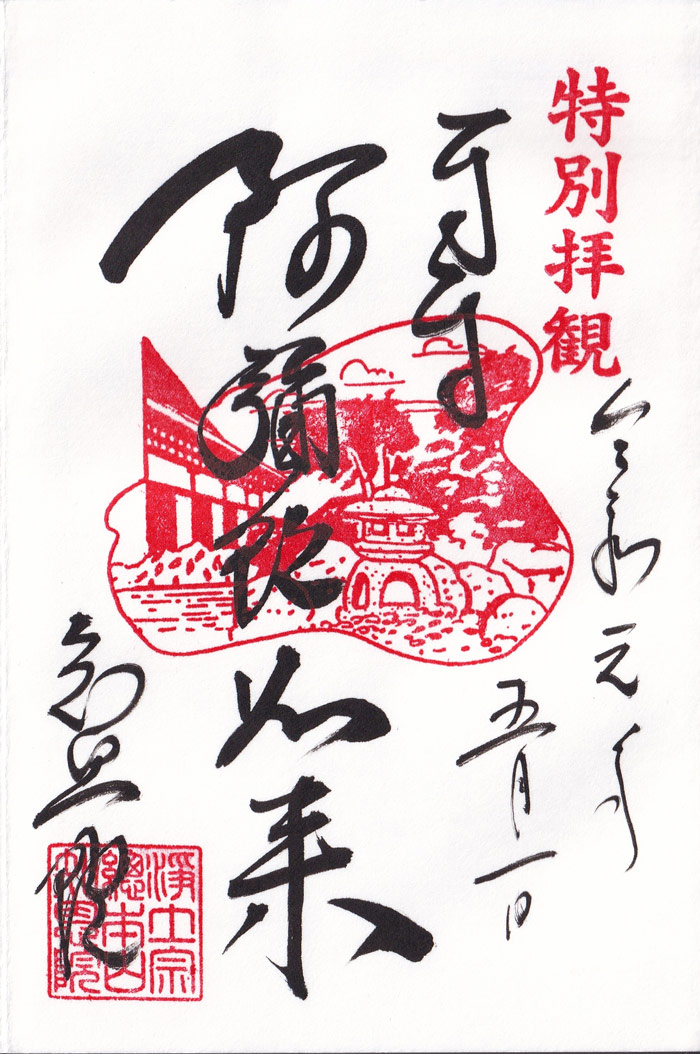 特別拝観
令和元年
五月一日
奉拝
阿彌陀如来
知恩院
淨土宗
總本山
知恩院